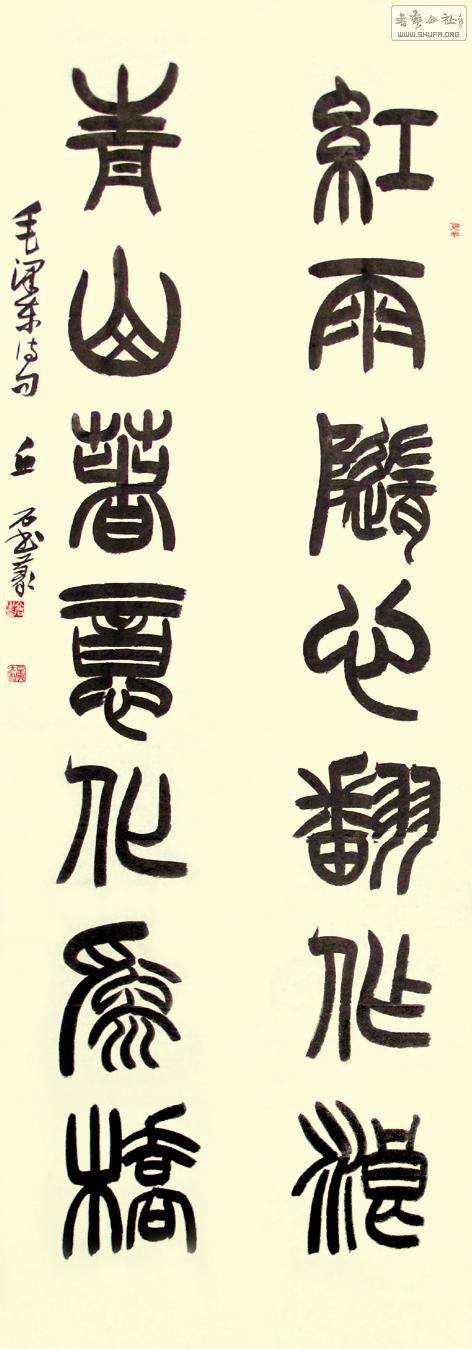 紅雨隨心翻作浪
青山著意化為橋
毛澤東詩句
丘石
書藝公社
WWW.SHUFA.ORG